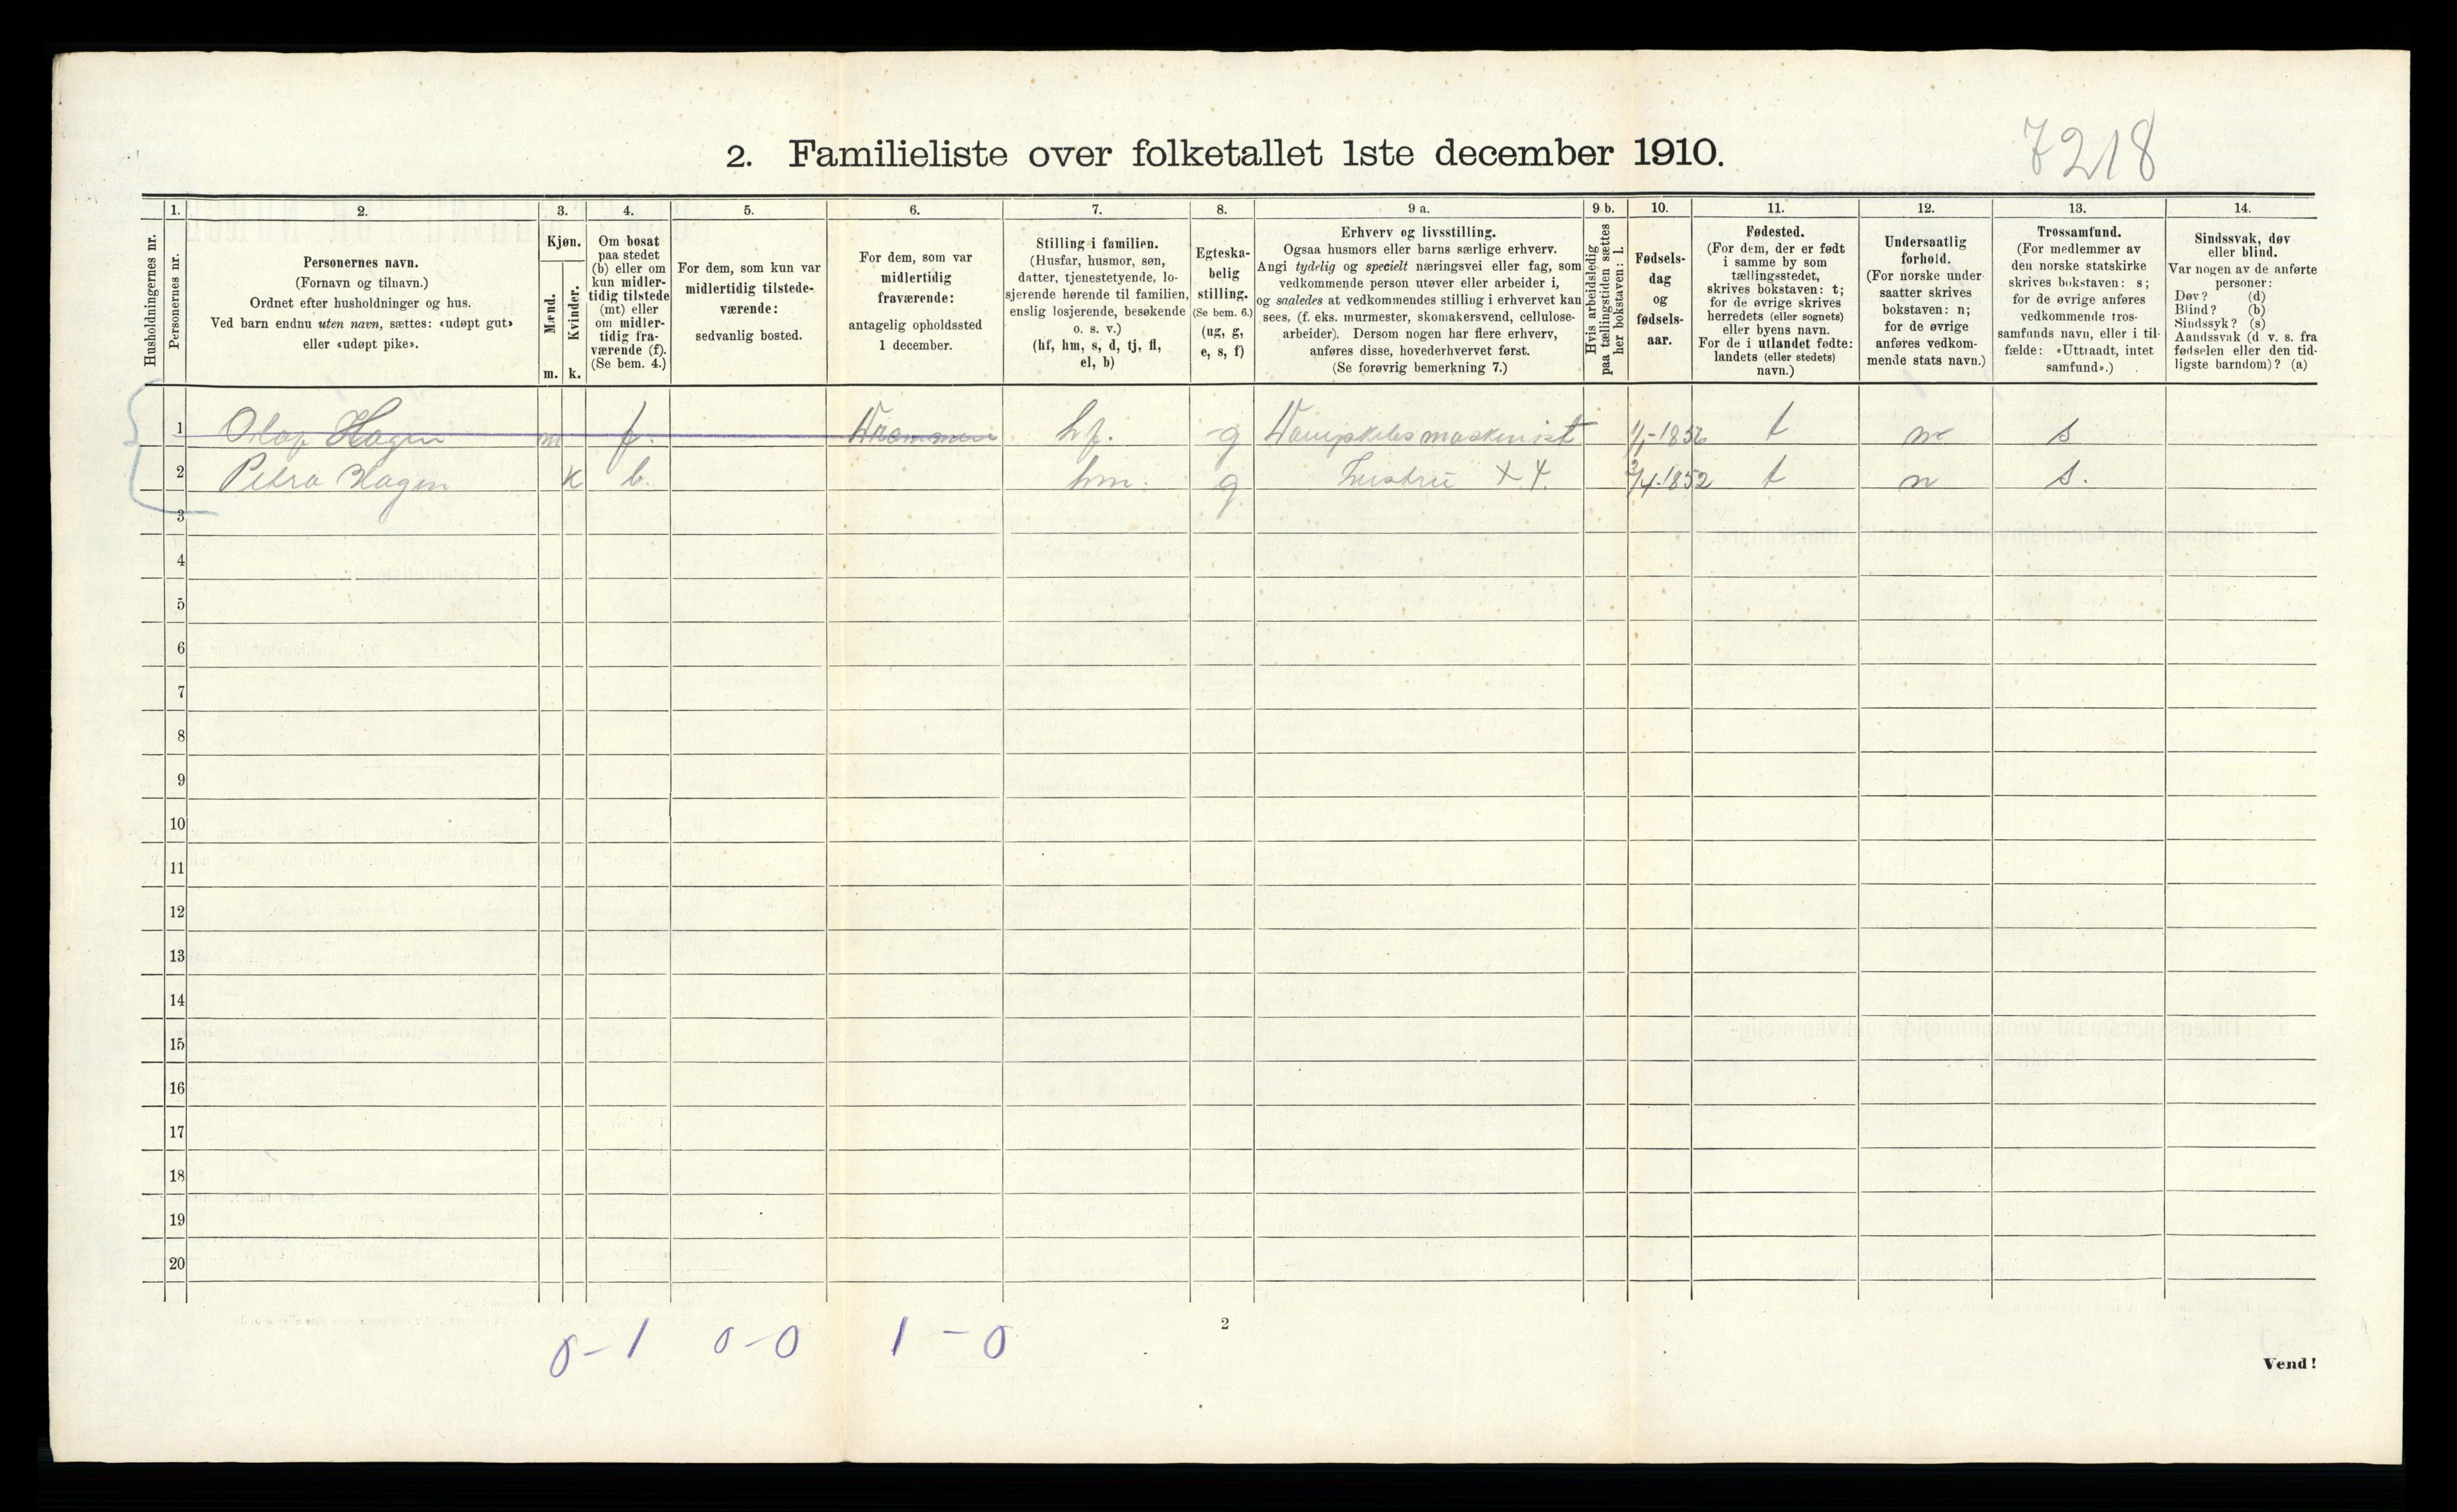 7218
2. Familieliste over folketallet 1ste december 1910.
Husholdningernes nr.
1.
Personernes nr.
2.
Personernes navn.
(Fornavn og tilnavn.)
Ordnet efter husholdninger og hus.
Ved barn endnu uten navn, sættes: «udøpt gut»
eller «udøpt pike».
3.
Kjøn.
Mænd.
Kvinder.
m. k.
4.
Om bosat
paa stedet
(b) eller om
kun midler-
tidig tilstede
(mt) eller
om midler-
tidig fra-
værende (f).
(Se bem. 4.)
5.
For dem, som kun var
midlertidig tilstede-
værende:
sedvanlig bosted.
6.
For dem, som var
midlertidig
fraværende:
antagelig opholdssted
1 december.
7.
Stilling i familien.
(Husfar, husmor, søn,
datter, tjenestetyende, lo-
sjerende hørende til familien,
enslig losjerende, besøkende
o. s. v.)
(hf, hm, s, d, tj, fl,
el, b)
8.
Egteska-
belig
stilling.
(Se bem. 6.)
(ug, g,
e, s, f)
9 a.
Erhverv og livsstilling.
Ogsaa husmors eller barns særlige erhverv.
Angi tydelig og specielt næringsvei eller fag, som
vedkommende person utøver eller arbeider i,
og saaledes at vedkommendes stilling i erhvervet kan
sees, (f. eks. murmester, skomakersvend, cellulose-
arbeider). Dersom nogen har flere erhverv,
anføres disse, hovederhvervet først.
(Se forøvrig bemerkning 7.)
9 b.
Hvis arbeidsledig
paa tællingstiden sættes
her bokstaven: l.
10.
Fødsels-
dag
og
fødsels-
aar.
11.
Fødested.
(For dem, der er født
i samme by som
tællingsstedet,
skrives bokstaven: t;
for de øvrige skrives
herredets (eller sognets)
eller byens navn.
For de i utlandet fødte:
landets (eller stedets)
navn.)
12.
Undersaatlig
forhold.
(For norske under-
saatter skrives
bokstaven: n;
for de øvrige
anføres vedkom-
mende stats navn.)
13.
Trossamfund.
(For medlemmer av
den norske statskirke
skrives bokstaven: s;
for de øvrige anføres
vedkommende tros-
samfunds navn, eller i til-
fælde: «Uttraadt, intet
samfund».)
14.
Sindssvak, døv
eller blind.
Var nogen av de anførte
personer:
Døv? (d)
Blind? (b)
Sindssyk? (s)
Aandssvak (d. v. s. fra
fødselen eller den tid-
ligste barndom)? (a)
1 Olaf Hagen m f. Drammen hf. g Dampskibsmaskinist t n s
2 Petra Hagen k b. hm. g Hustru 3/4-1852 t n s.
3
4
5
6
7
8
9
10
11
12
13
14
15
16
17
18
19
20
0-1 0-0 1-0
2
Vend!